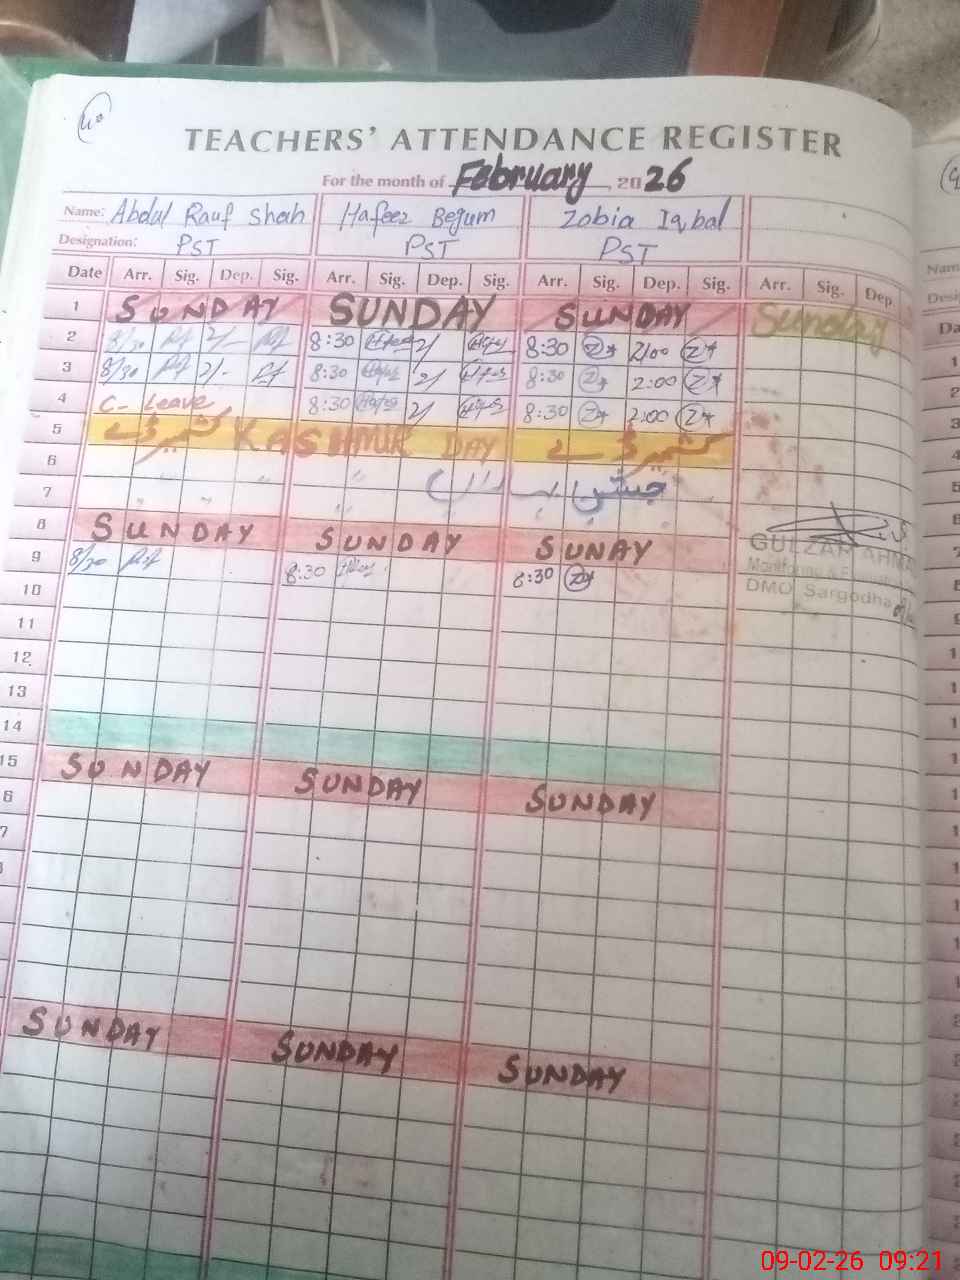 TEACHERS' ATTENDANCE REGISTER
For the month of February, 2026
Name: Abdul Rauf Shah Hafeez Begum Zobia Iqbal
Designation: PST PST PST
Date Arr. Sig. Dep. Sig. Arr. Sig. Dep. Sig. Arr. Sig. Dep. Sig. Arr. Sig. Dep.
1 SUNDAY SUNDAY SUNDAY Sunday
2 8/30 2/- 8:30 2/ 8:30 2/00
3 8/30 2/- 8:30 2/ 8:30 2:00
4 C- Leave 8:30 2/ 8:30 2:00
5 کشمیر ڈے KASHMIR DAY کشمیر ڈے
6
7 جشن
8 SUNDAY SUNDAY SUNAY
9 8/30 8:30 8:30
GULZAR AHMA
Monitoring &
DMO Sargodha
10
11
12
13
14
15 SUNDAY SUNDAY SUNDAY
SUNDAY SUNDAY SUNDAY
09-02-26 09:21